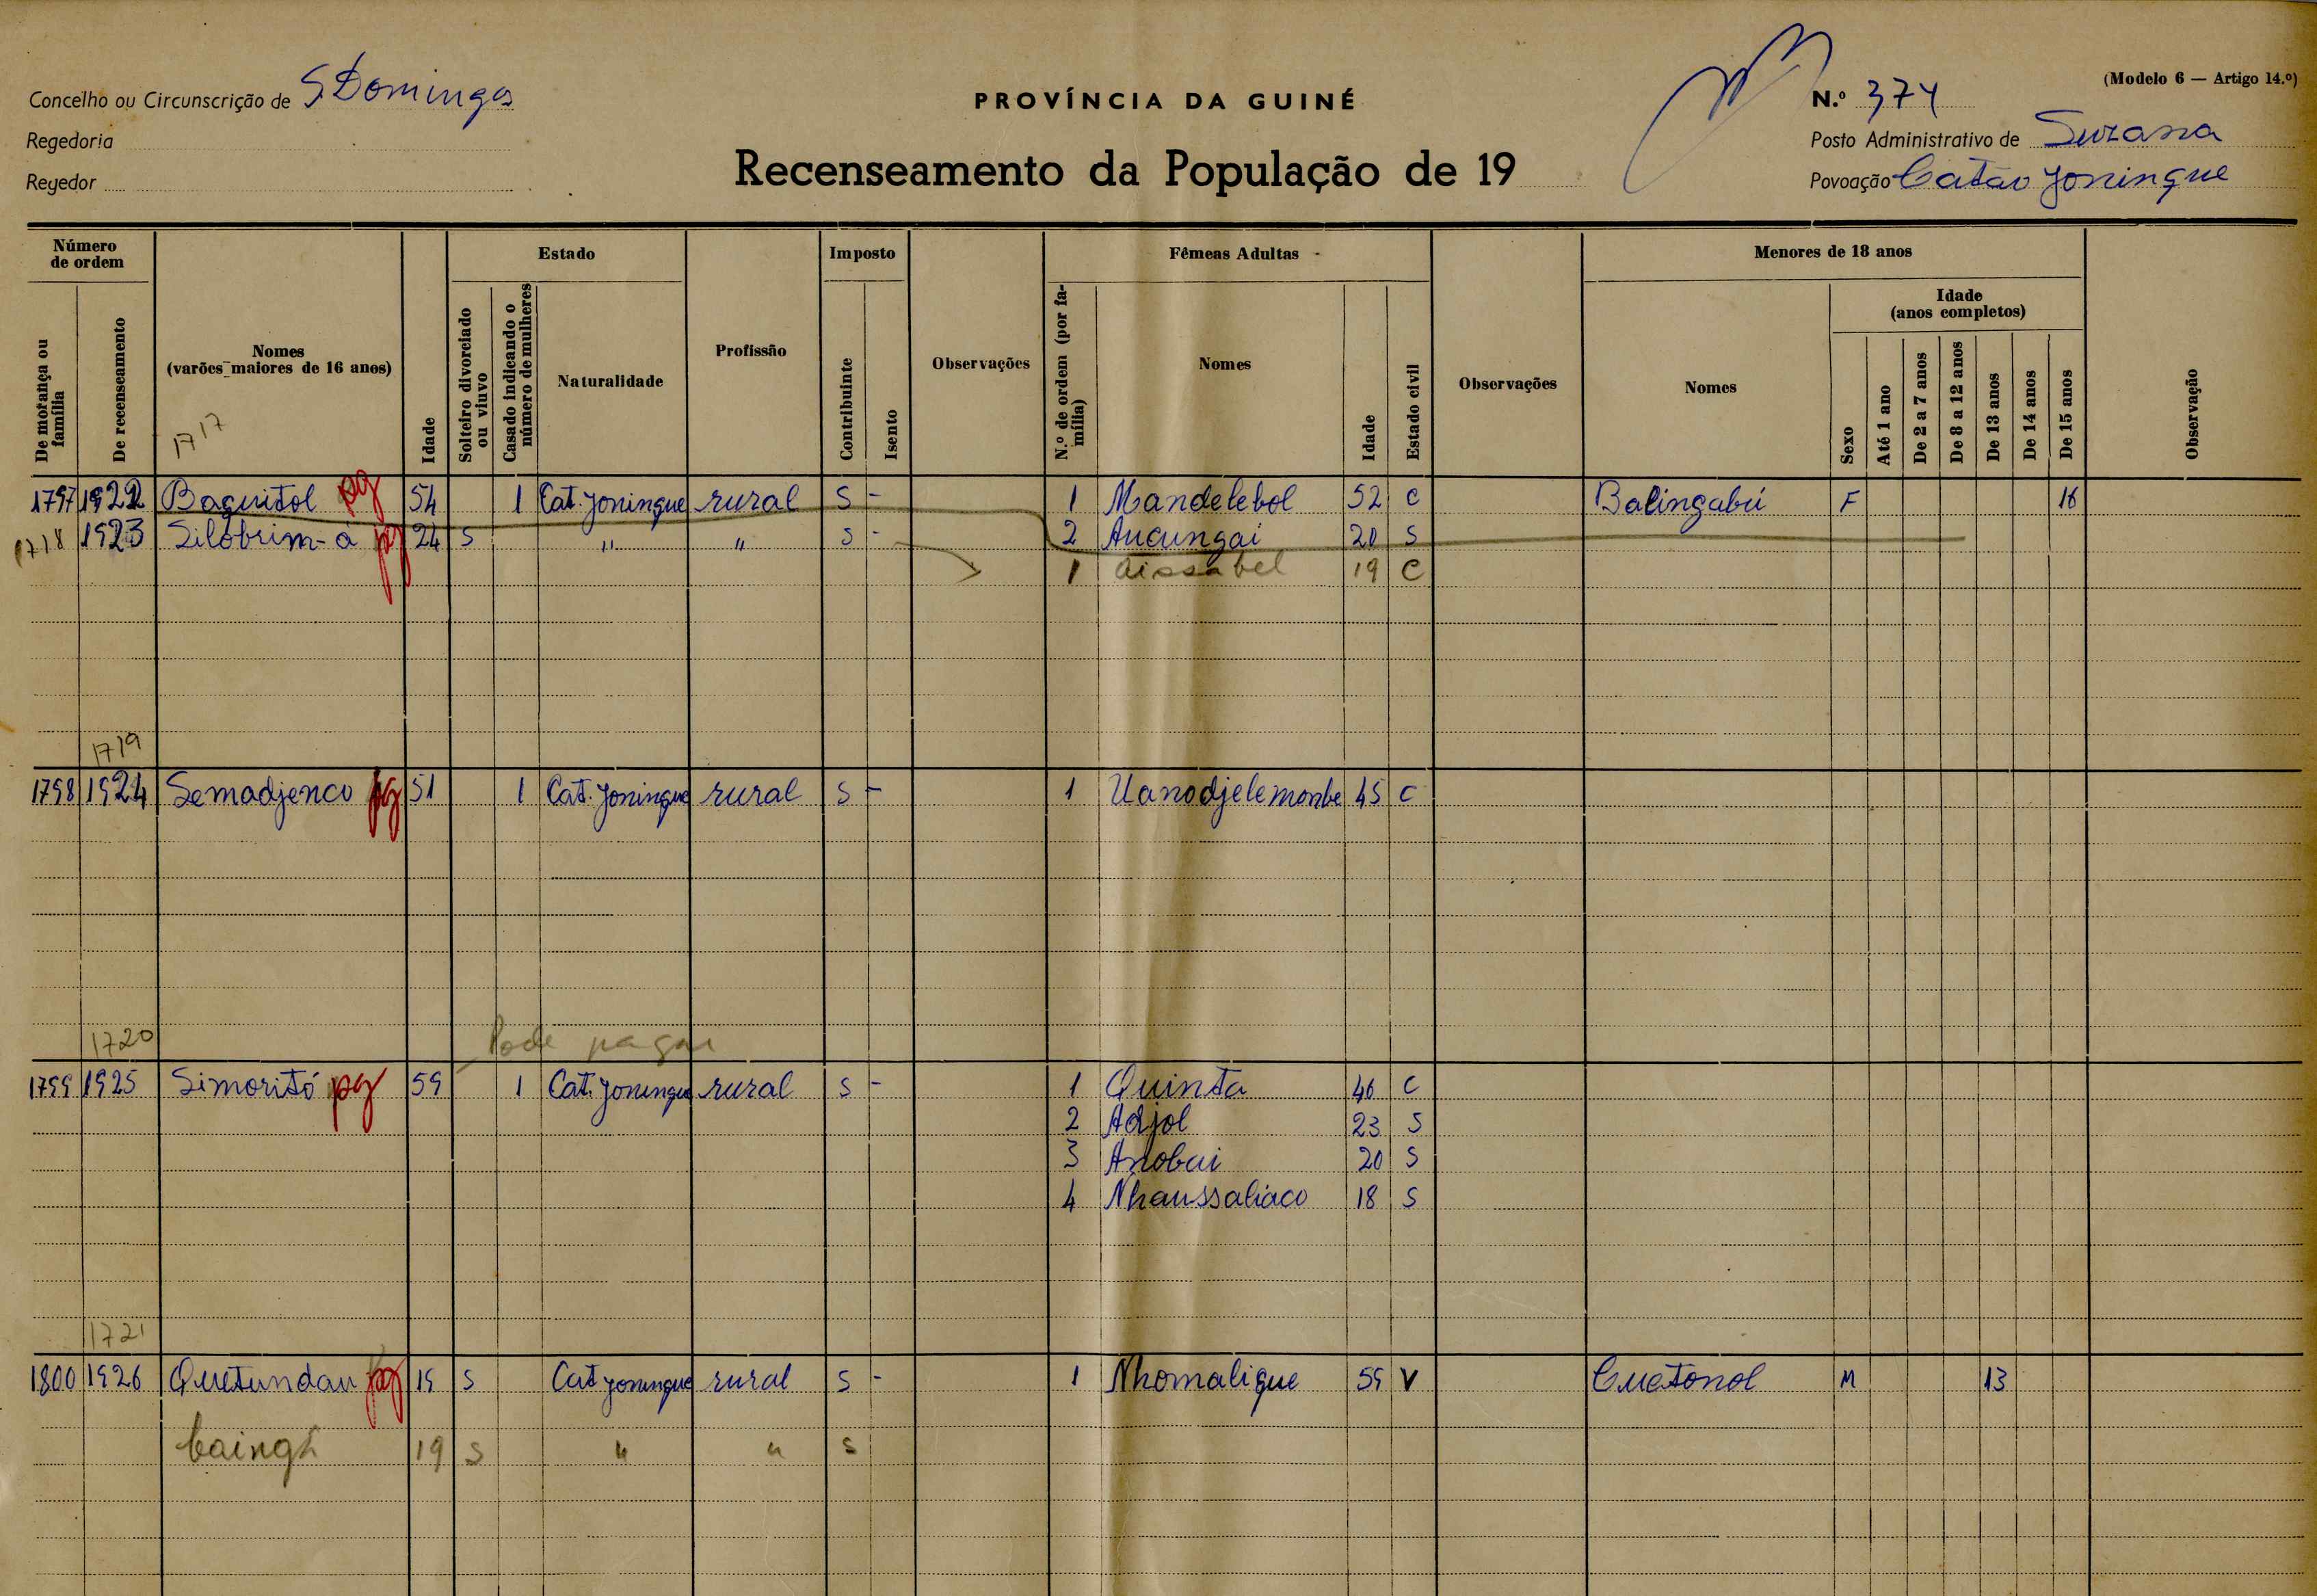 (Modelo 6 — Artigo 14.º)
Concelho ou Circunscrição de S. Domingos
PROVÍNCIA DA GUINÉ
N.º 374
Regedoria
Posto Administrativo de Suzana
Regedor
Recenseamento da População de 19
Povoação Catão Joningue
Número de ordem
Estado
Imposto
Fêmeas Adultas
Menores de 18 anos
De morança ou família
De recenseamento
Nomes
(varões maiores de 16 anos)
Idade
Solteiro divorciado ou viuvo
Casado indicando o número de mulheres
Naturalidade
Profissão
Contribuinte
Isento
Observações
N.º de ordem (por família)
Nomes
Idade
Estado civil
Observações
Nomes
Idade
(anos completos)
Sexo
Até 1 ano
De 2 a 7 anos
De 8 a 12 anos
De 13 anos
De 14 anos
De 15 anos
Observação
1717
1797 1922 Baguitol pg 54 1 Cat. Joningue rural S - 1 Mandelebol 52 C Balingabú F 16
1718 1923 Silobrim-á pg 24 S " " S - 2 Aucungai 20 S
1 Aissabel 19 C
1719
1798 1924 Semadjenco pg 51 1 Cat. Joningue rural S - 1 Uanodjelemonbe 45 C
1720 Pode pagar
1799 1925 Simoritó pg 59 1 Cat. Joningue rural S - 1 Quinta 46 C
2 Adjol 23 S
3 Anobai 20 S
4 Nhaussaliaco 18 S
1721
1800 1926 Quetundau pg 19 S Cat Joningue rural S - 1 Nhomalique 59 V Cuatonol M 13
19 S " " S